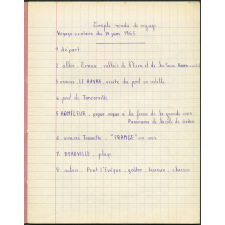 Compte rendu de voyage
Voyage scolaire du 17 juin 1965
1 départ
2 aller. Evreux . vallées de l'Eure et de la Seine Rouen
3 arrivée LE HAVRE, visite du port en vedette
4 pont de Tancarville
5 HONFLEUR . pique nique à la ferme de la grande cour
Panorama de la côte de Grâce
6 Trouville . "FRANCE" en mer
7. DEAUVILLE . plage
8 retour . Pont l'Evêque . goûter chanson